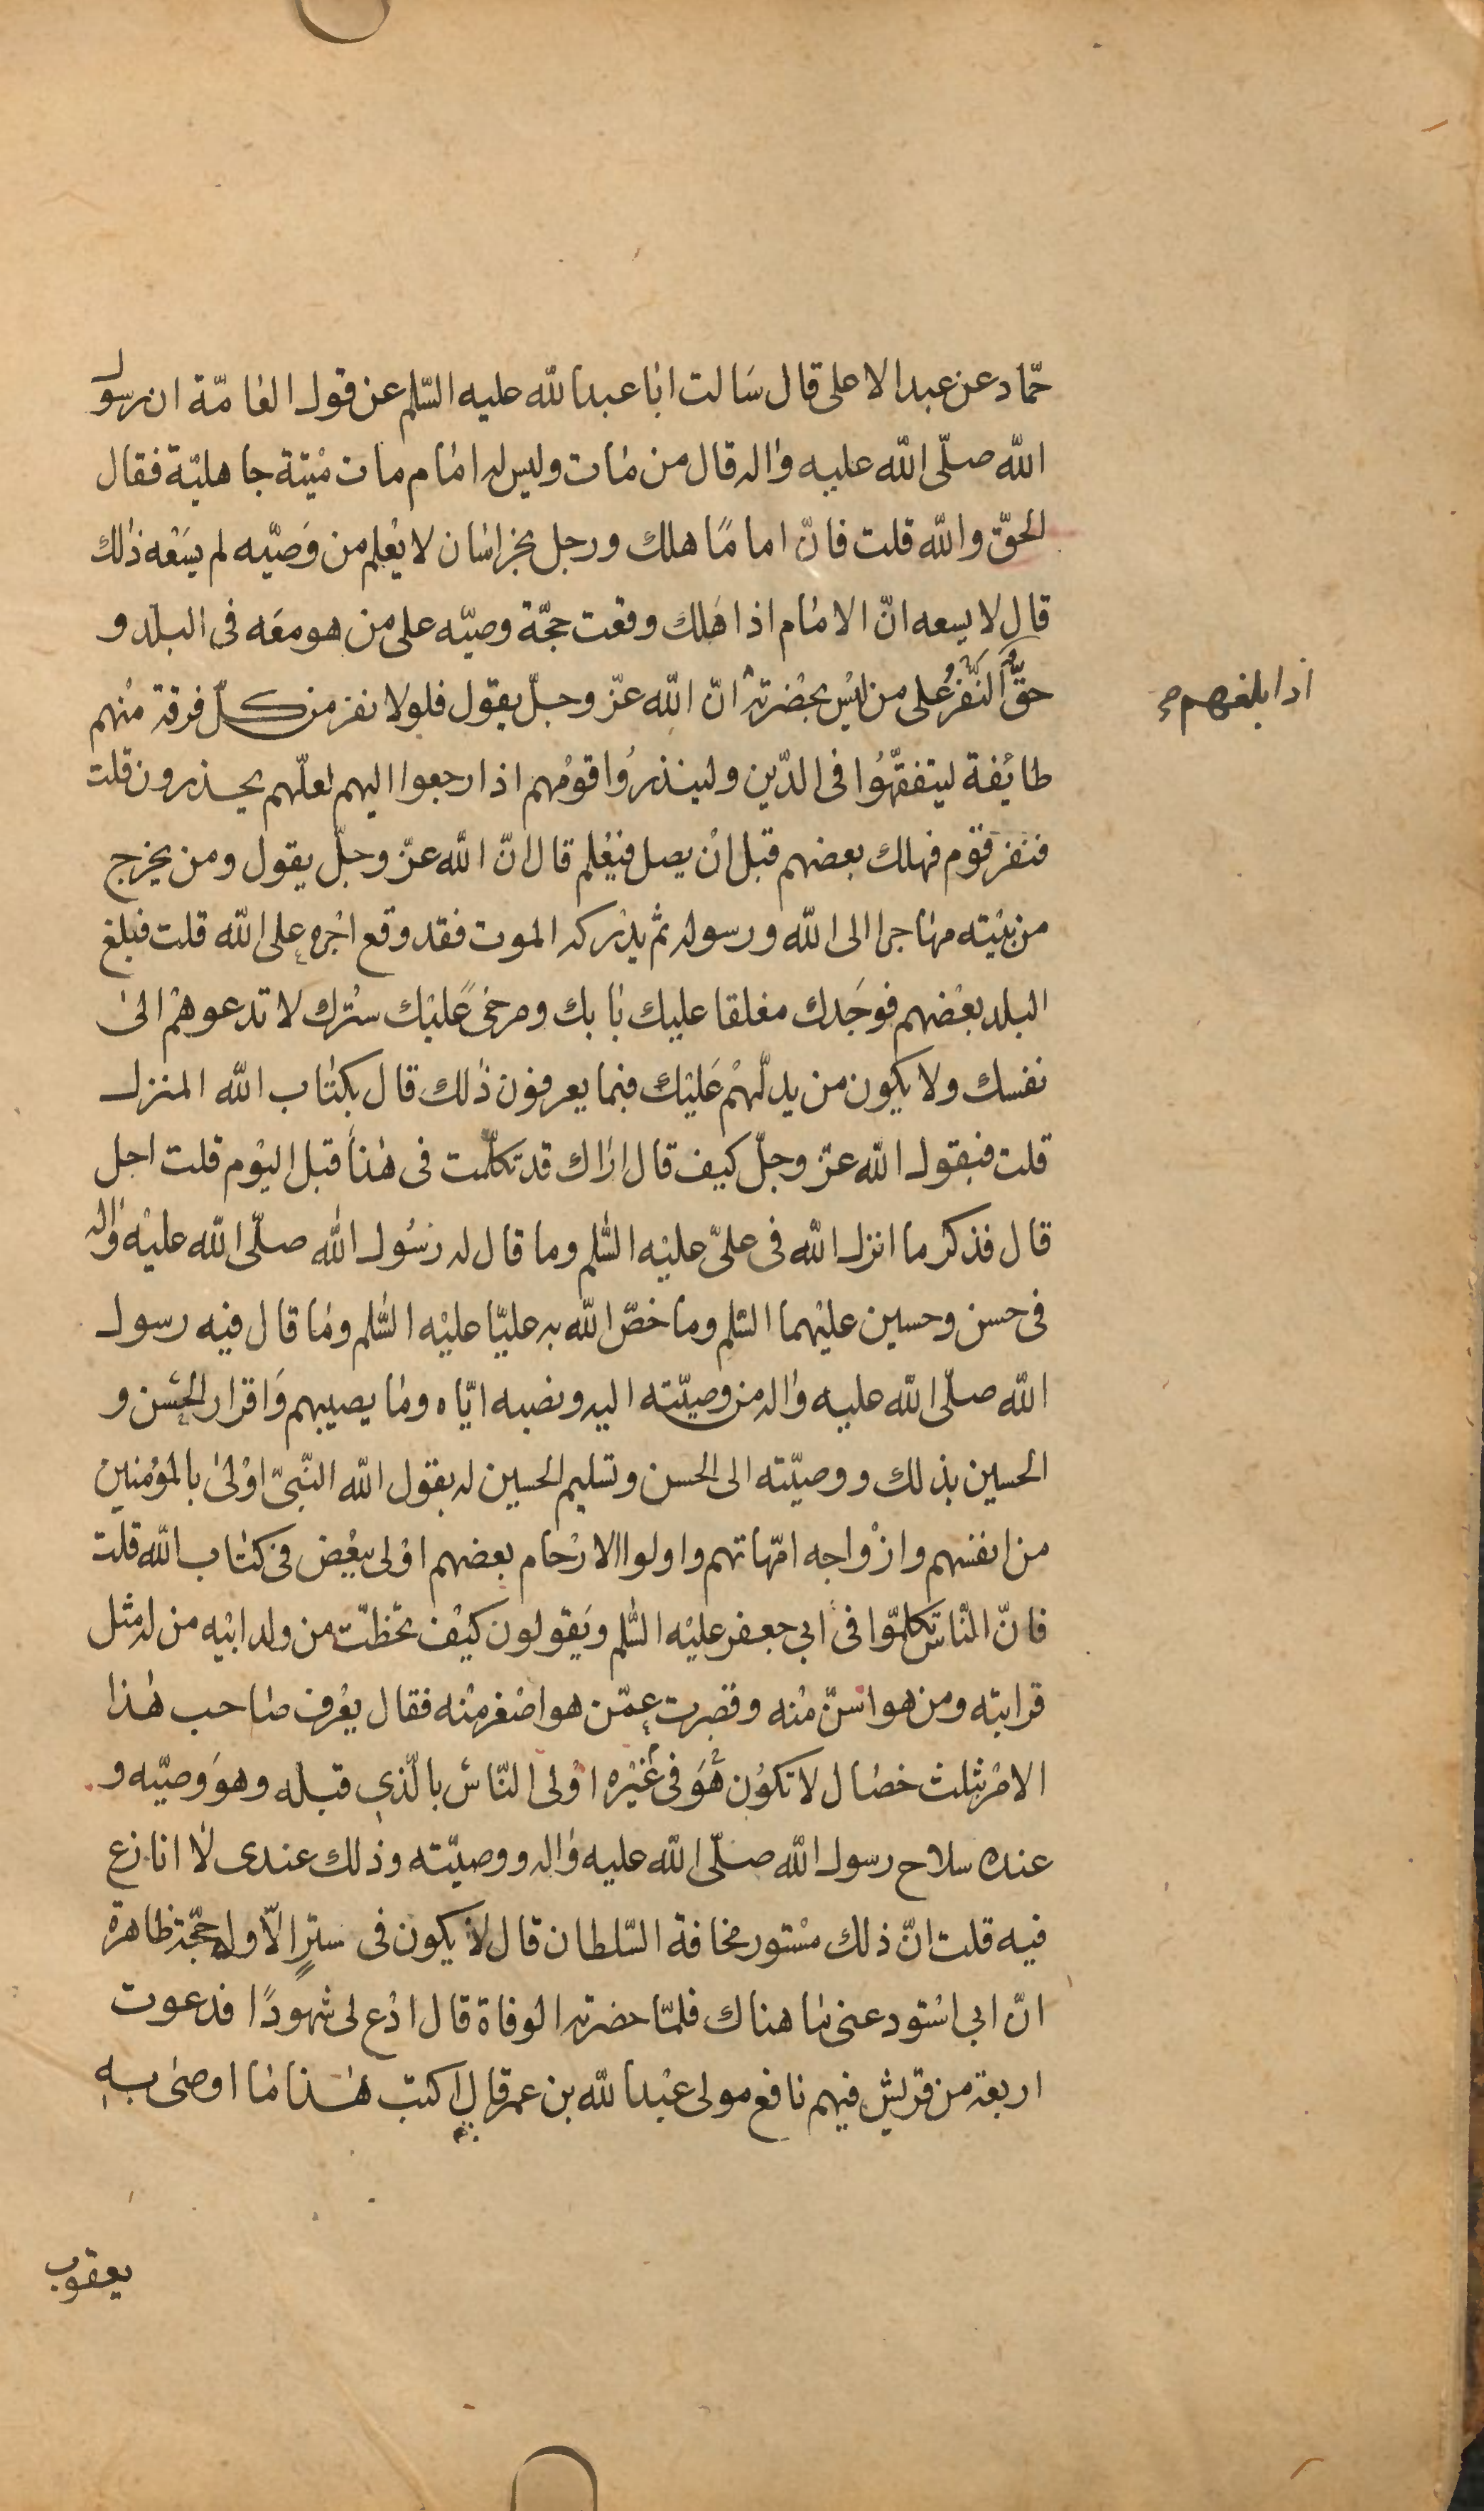 حمّاد عن عبد الاعلى قال سَالت ابا عبد الله عليه السّلم عن قول العامّة ان رسول
الله صلّى الله عليه واله قال من مات وليس له امام مات ميْتة جاهليّة فقال
الحقّ والله قلت فانّ امامًا هلك ورجل بخراسان لا يعْلم من وَصيّه لم يسَعْه ذلك
قال لا يسعه انّ الامام اذا هَلك وقعت حجّة وصيّه على من هو معَه فى البلد و
حقُّ النّفْرُ على من ليْس بحضْرته انّ الله عزّ وجلّ يقول فلولا نفر من كلّ فرقة منْهم
اذا بلغهم
طايْفة ليتفقّهُوا فى الدّين ولينذرُوا قوْمهم اذا رجعوا اليهم لعلّهم يحذرون قلت
فنفر قوْم فهلك بعضهم قبل انْ يصل فيَعْلم قال انّ الله عزّ وجلّ يقول ومن يخرج
من بيْته مهاجرا الى الله ورسوله ثم يدْركه الموت فقد وقع اجْره على الله قلت فبلغ
البلد بعْضهم فوجَدك مغلقا عليك بابك ومرخىً عليْك ستْرك لا تدعوهمْ الى
نفسك ولا يكون من يدلّهمْ عَليْك فبما يعرفون ذلك قال بكتاب الله المنزل
قلت فيقول الله عزّ وجلّ كيف قال اراك قد تكلّمت فى هذا قبل اليوْم قلت اجل
قال فذكر ما انزل الله فى علىّ عليْه السّلم وما قال له رسُول الله صلّى الله عليْه واله
فى حسن وحسين عليْهما السّلم وما خصّ الله به عليّا عليْه السّلم وما قال فيه رسول
الله صلّى الله عليه واله من وصيّته اليه ونصبه ايّاه وما يصيبهم وَاقرار الحسَن و
الحسين بذلك ووصيّته الى الحسن وتسليم الحسين له بقول الله النّبىّ اوْلى بالموْمنين
من انفسهم وازْواجه امّهاتهم واولوا الارْحام بعضهم اوْلى ببعْض فى كتاب الله قلت
فانّ النّاس تكلّموا فى ابى جعفر عليْه السّلم ويَقولون كيْف تخطّت من ولد ابيْه من له مثل
قرابته ومن هو اسنّ منْه وقصرت عمّن هو اصْغر منْه فقال يعْرف صاحب هذا
الامْر بثلث خصال لا تكوُن هُوَ فى غيْره اوْلى النّاس بالّذى قبله وهوَ وصيّه و
عنده سلاح رسول الله صلّى الله عليه واله ووصيّته وذلك عندى لا انازع
فيه قلت انّ ذلك مسْتور مخافة السّلطان قال لا يكون فى سترٍ الّا وله حجّة ظاهرة
انّ ابى اسْتودعنى ما هناك فلمّا حضرته الوفاة قال ادْع لى شهودًا فدعوت
اربعة من قريْش فيهم نافع مولى عبْد الله بن عمر قال اكتب هذا ما اوصى به
يعقوب